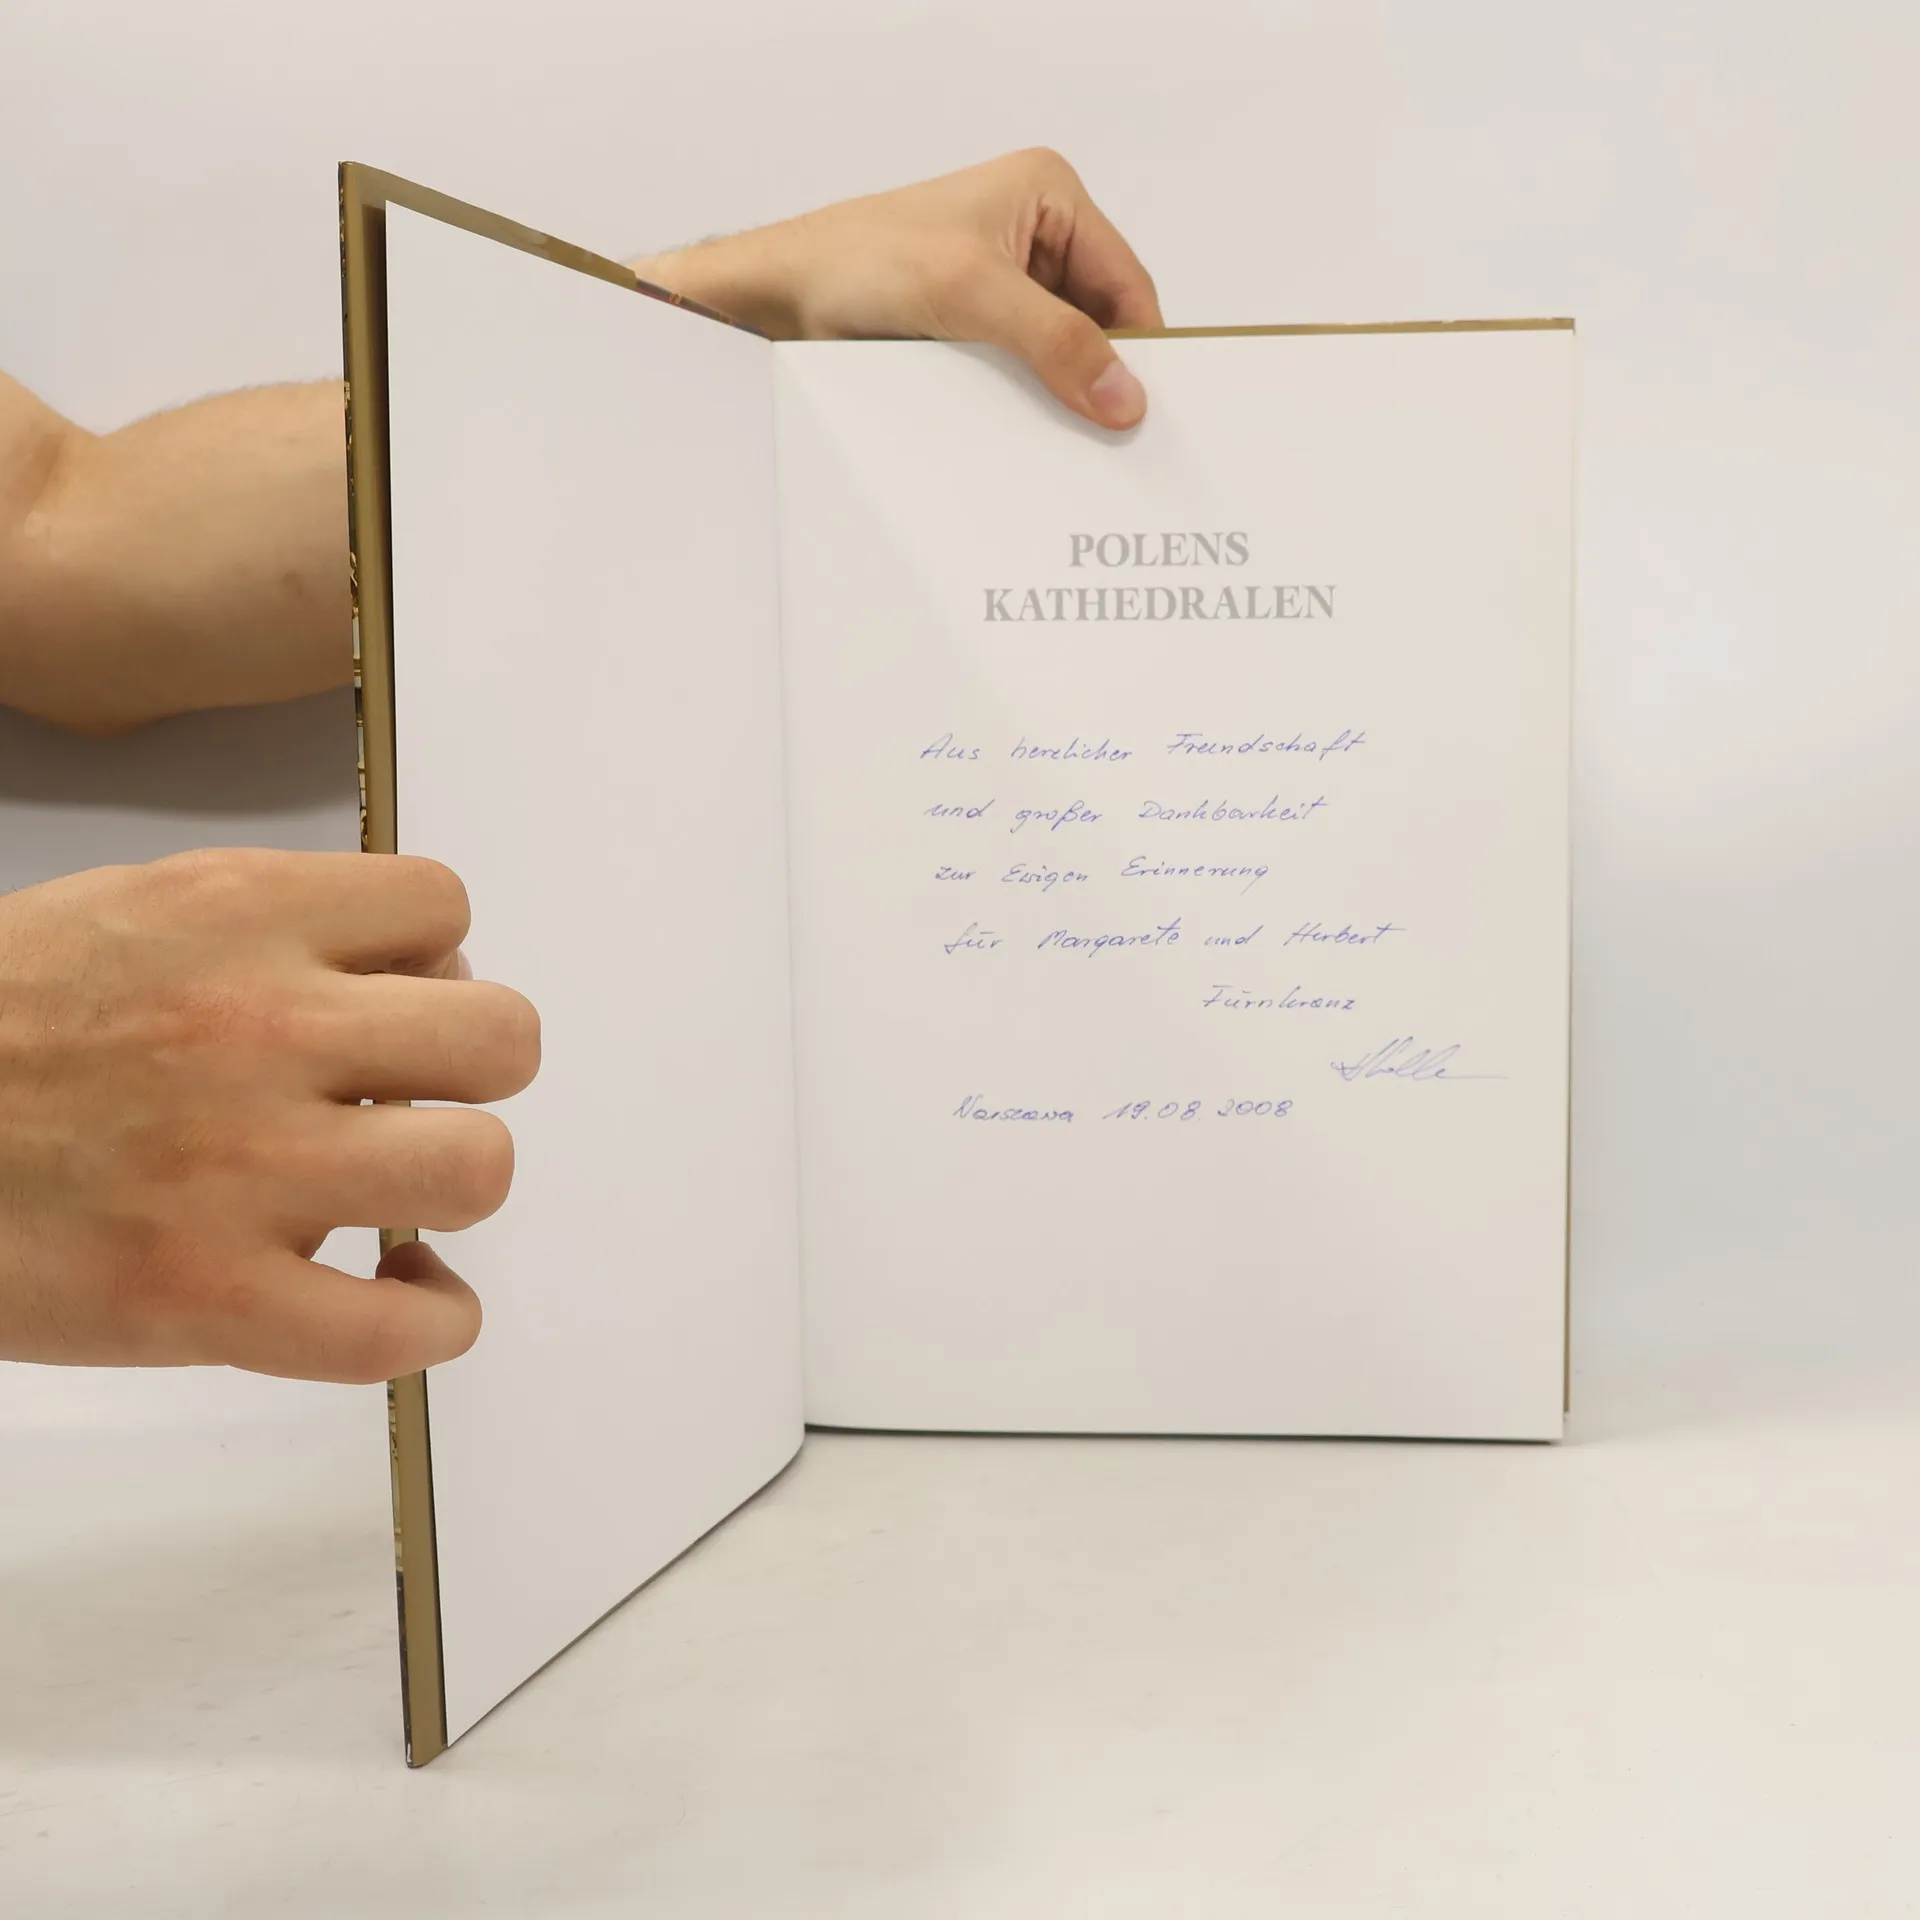 POLENS
KATHEDRALEN
Aus herzlicher Freundschaft
und großer Dankbarkeit
zur Ewigen Erinnerung
für Margarete und Herbert
Fürnkranz
Warszawa 19.08.2008